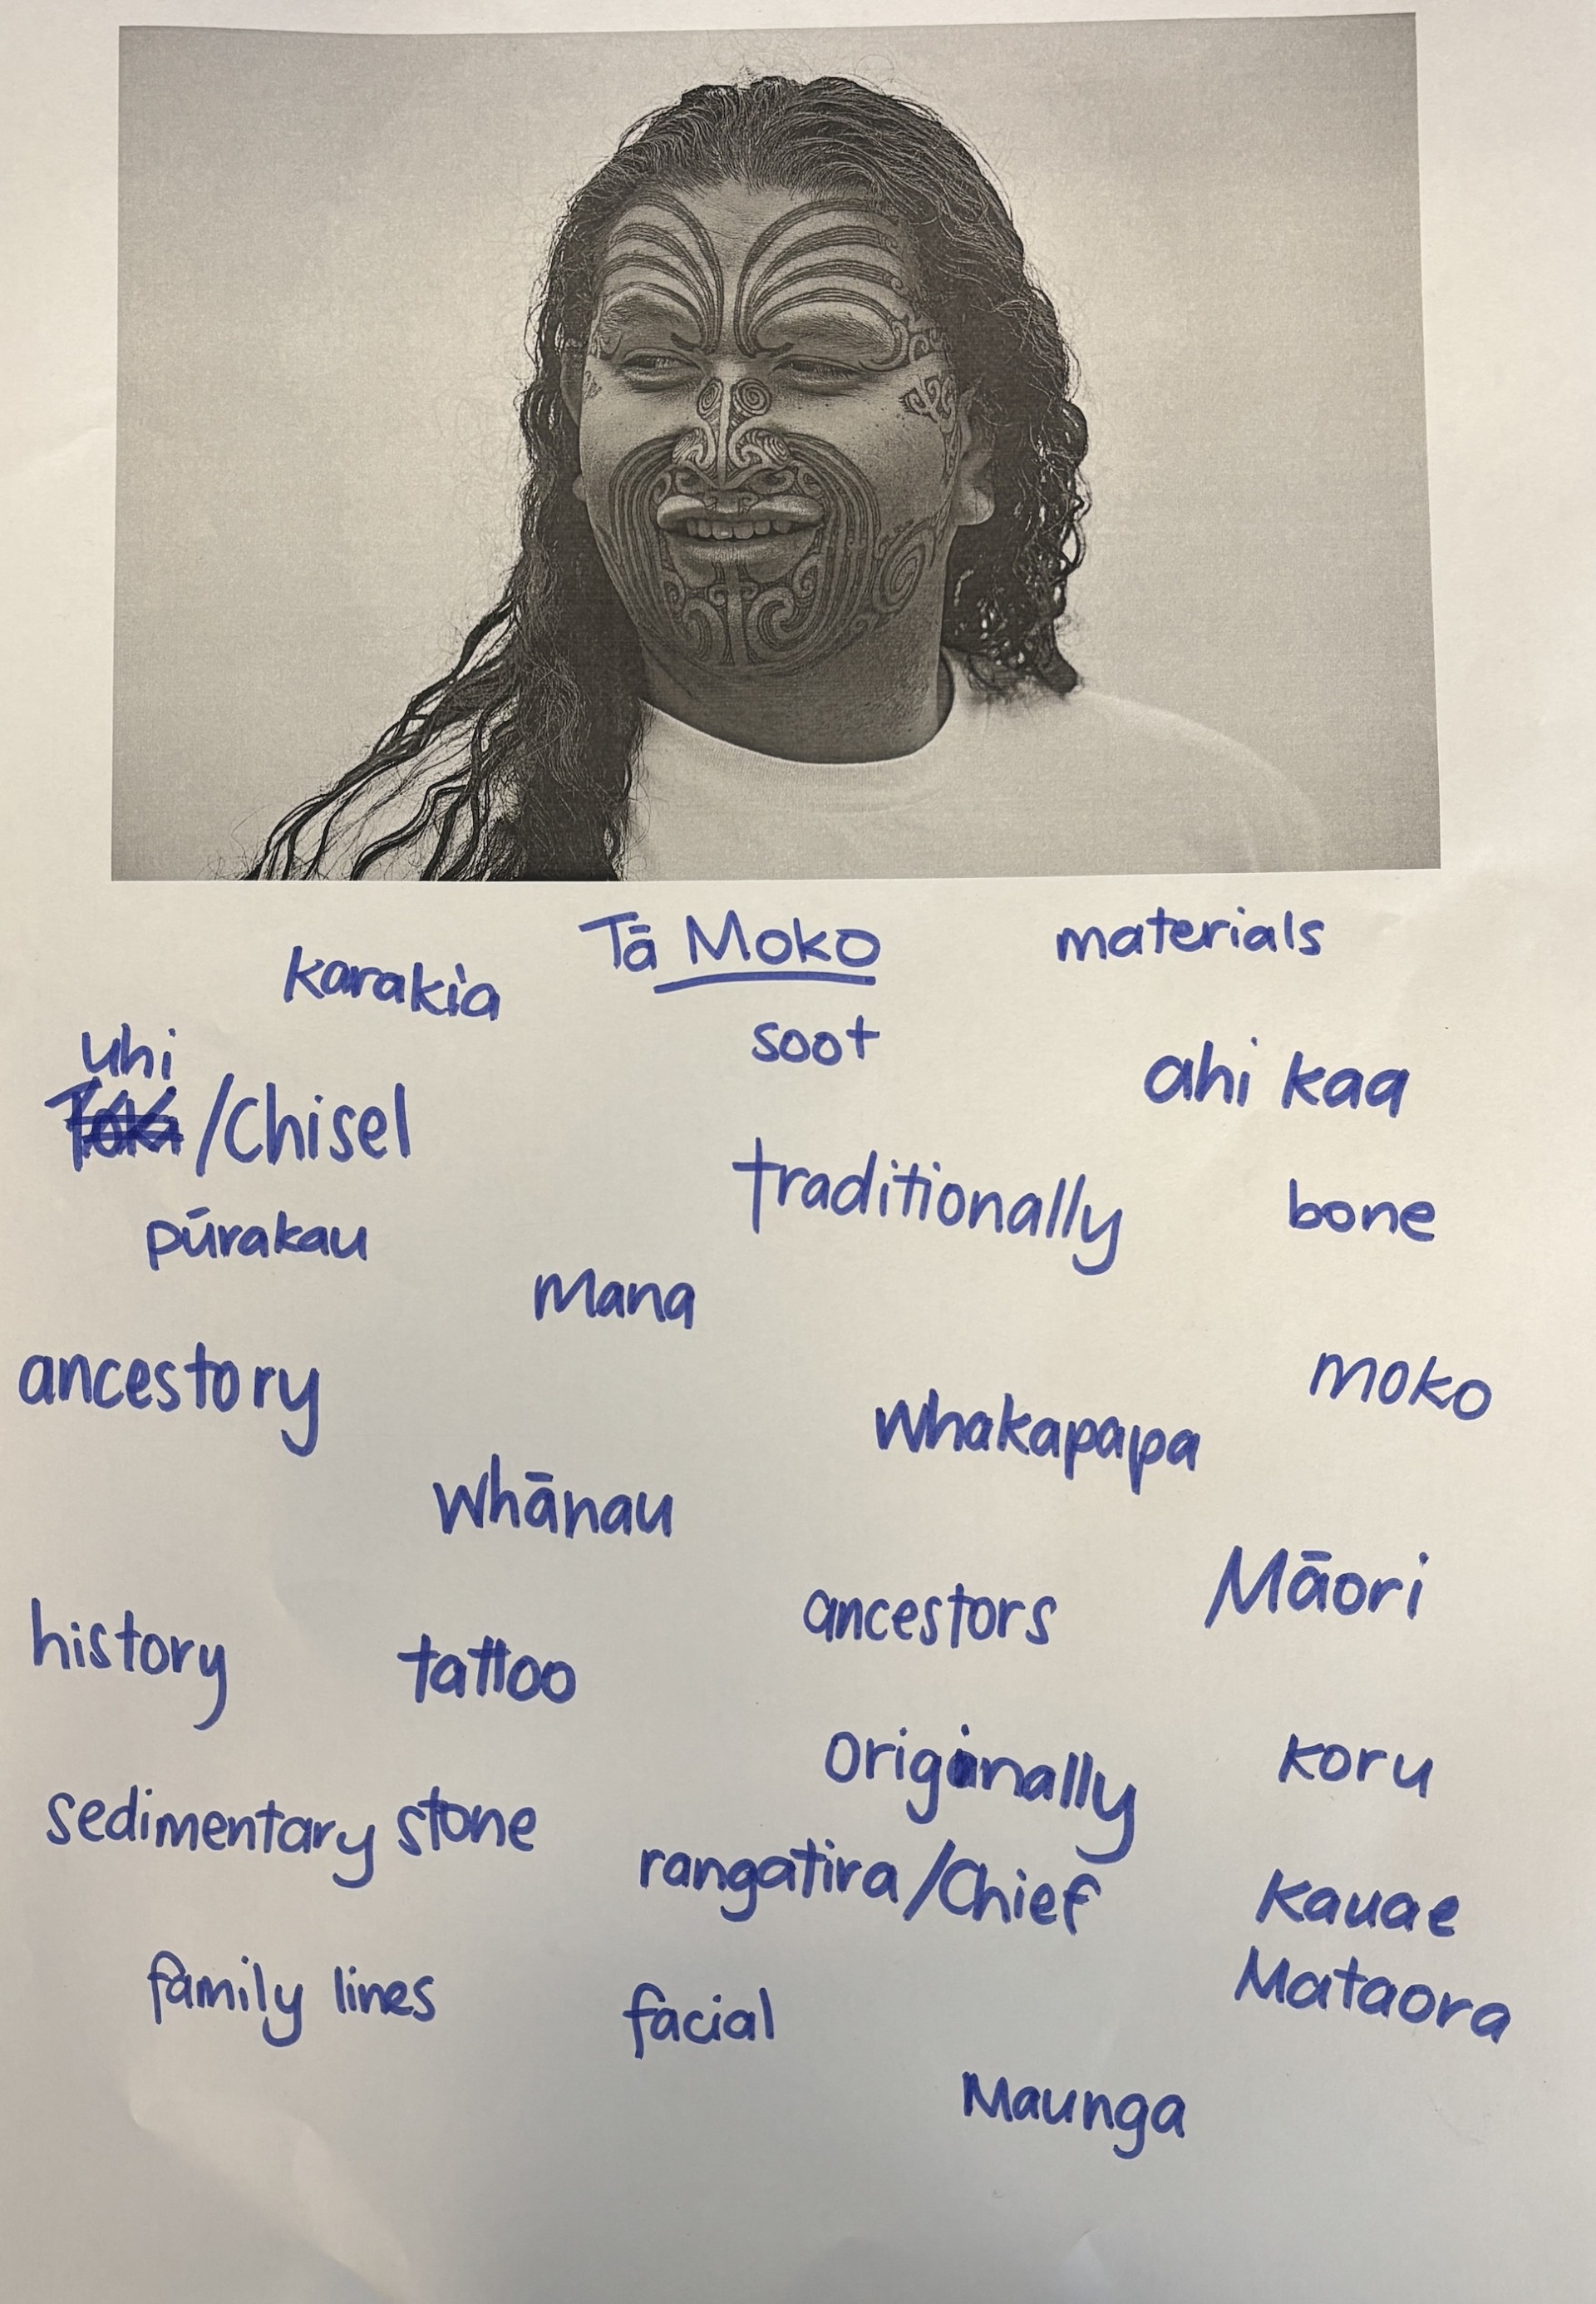 Tā Moko
materials
karakia
soot
uhi
ahi kaa
/Chisel
traditionally
bone
pūrakau
Mana
ancestory
moko
whakapapa
whānau
Māori
ancestors
history
tattoo
originally
koru
sedimentary stone
rangatira/Chief
Kauae
Mataora
family lines
facial
Maunga